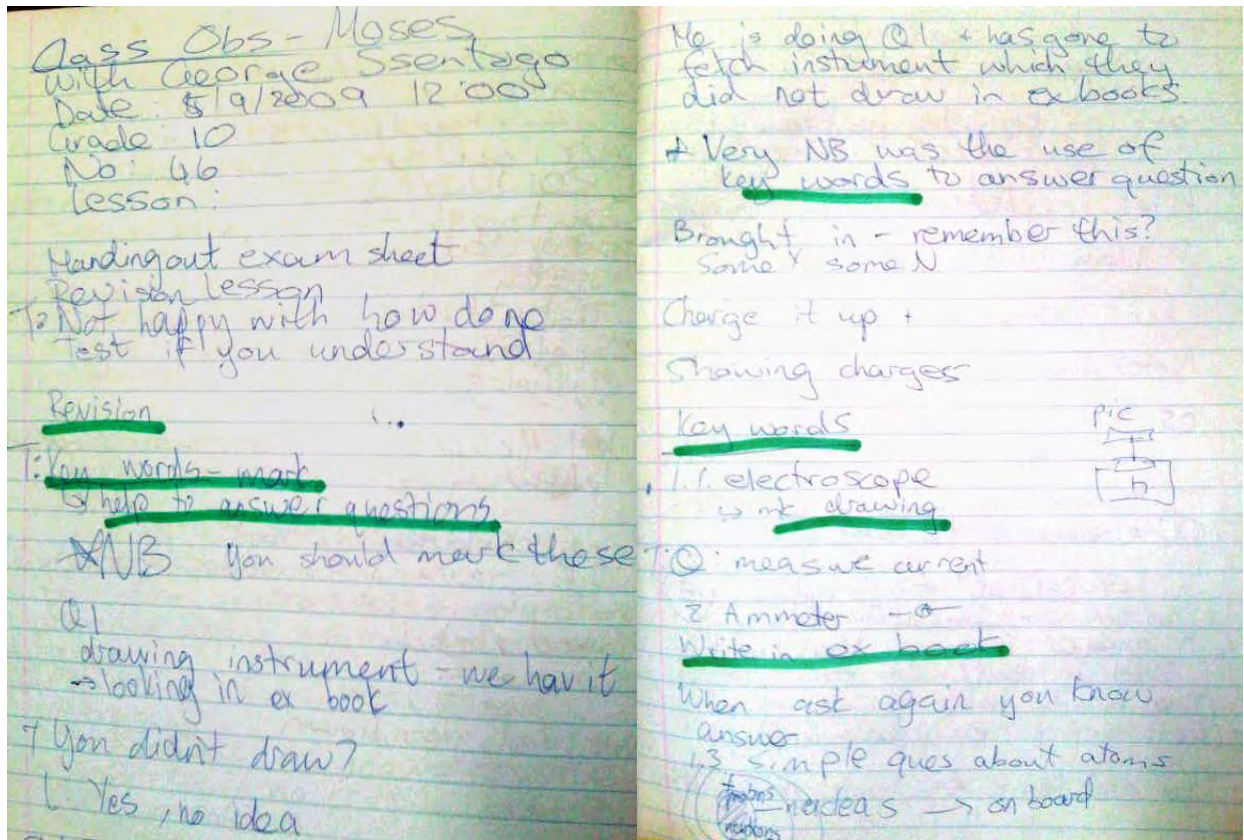 Class Obs - Moses
with George Ssentogo
Date: 5/9/2009 12:00
Grade 10
No: 46
Lesson:
Handing out exam sheet
Revision lesson
T: Not happy with how done
Test if you understand
Revision
T: Key words - mark
↳ help to answer questions
*NB You should mark these
Q1
drawing instrument - we hav it
→ looking in ex book
T You didn't draw?
L Yes, no idea
He is doing Q1 + has gone to
fetch instument which they
did not draw in ex books
* Very NB was the use of
key words to answer question
Brought in - remember this?
Some Y some N
Charge it up +
Showing charges
Key words
pic
1.1. electroscope
↳ drawing
T: Q: measure current
2 Ammeter
Write in ex book
When ask again you know
answer
1.3 simple ques about atoms
nucleas → on board